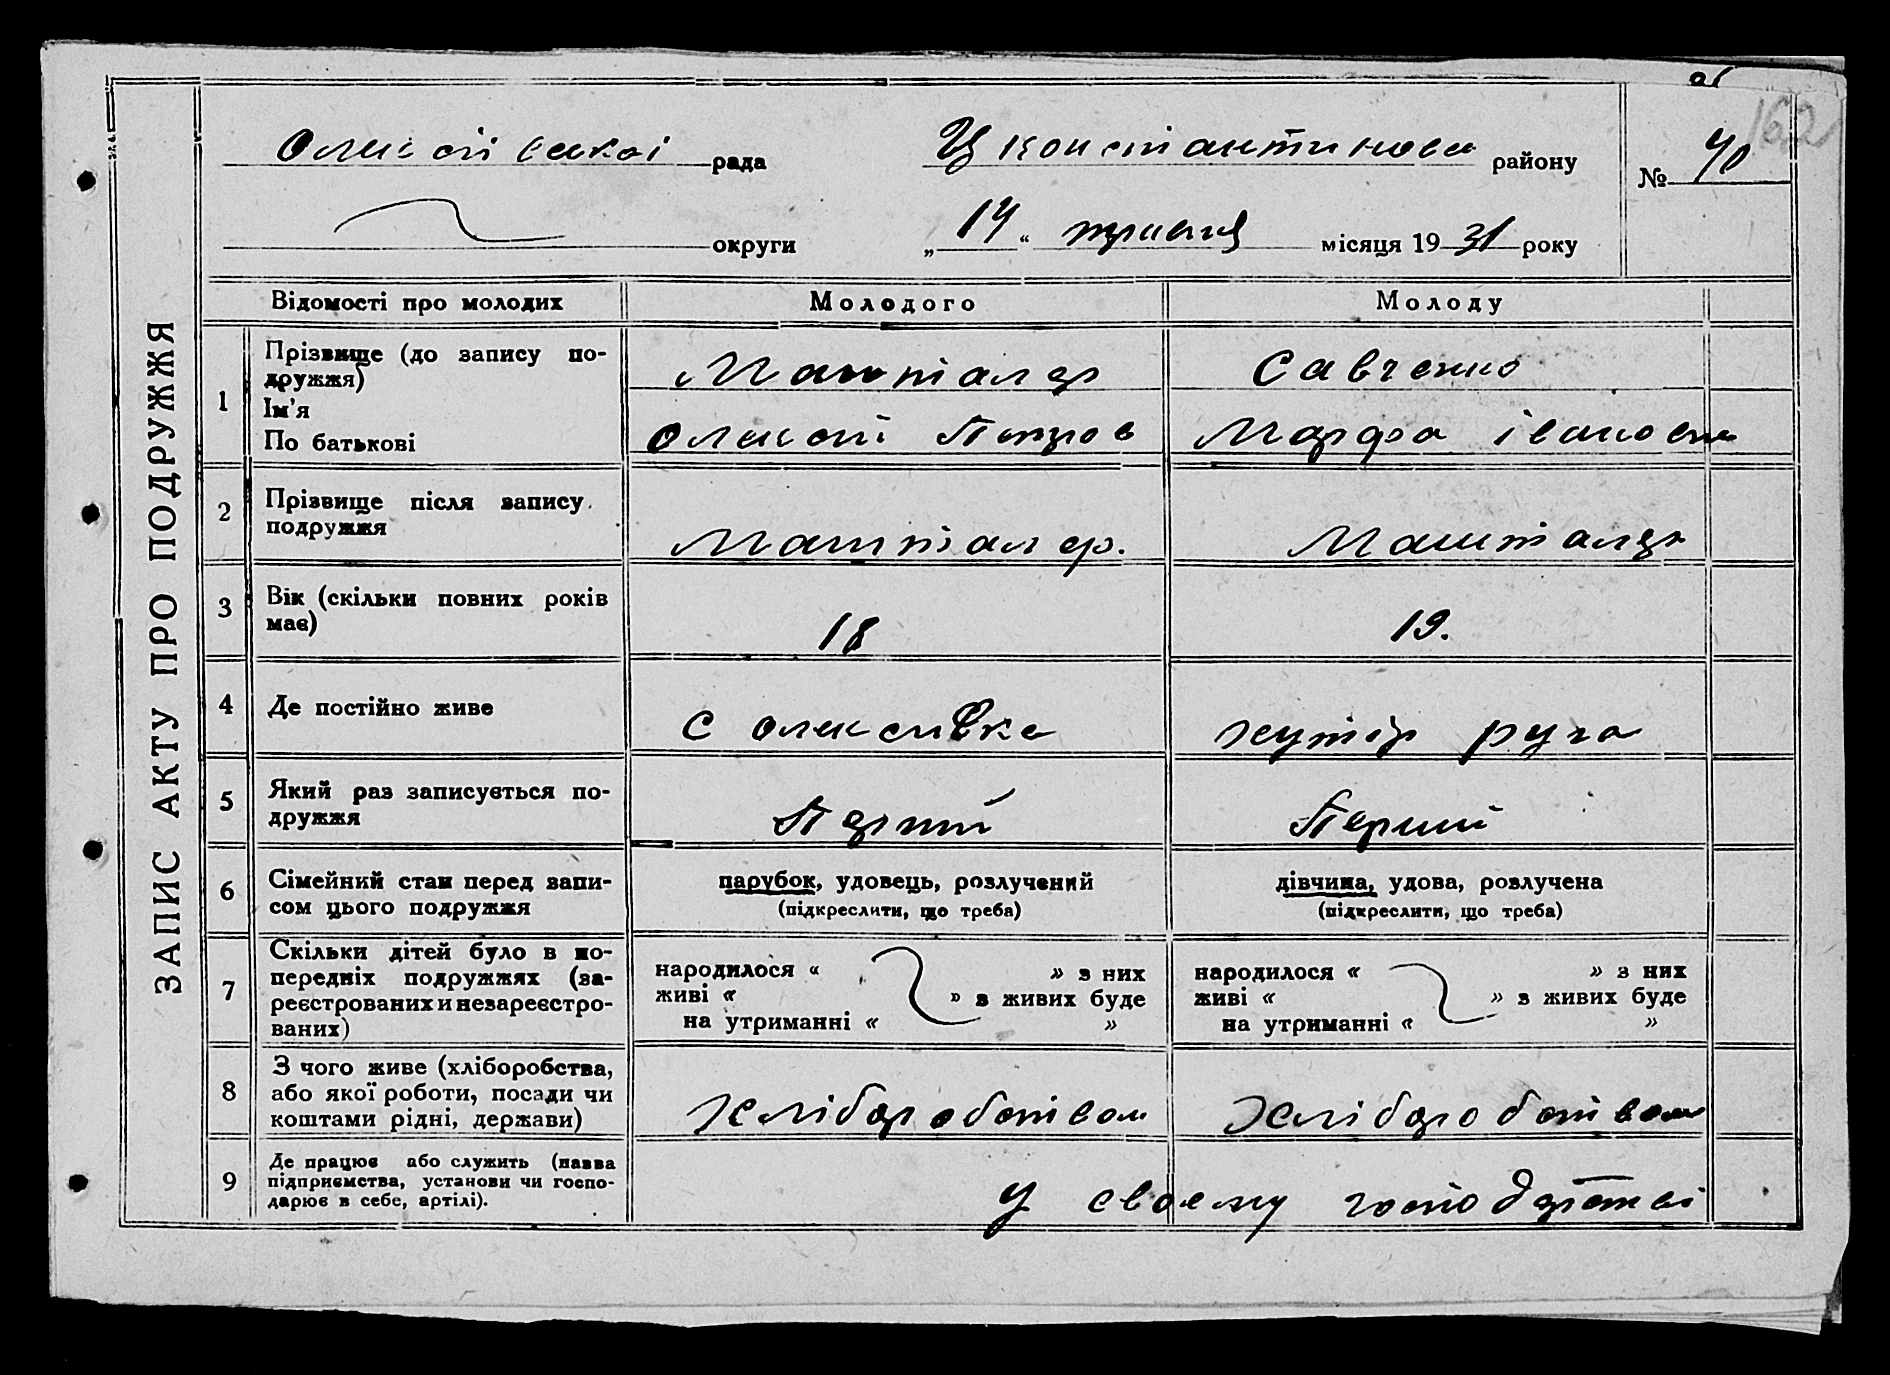 162
Олексіївскої рада Ц константинова району
№ 40
округи „14“ травня місяця 1931 року
ЗАПИС АКТУ ПРО ПОДРУЖЖЯ
Відомості про молодих Молодого Молоду
1 Прізвище (до запису по-
дружжя)
Машталер Савченко
Ім’я
По батькові
Олексій Петров Марфа івановна
2 Прізвище після запису
подружжя
Машталер. Машталер
3 Вік (скільки повних років
має)
18 19.
4 Де постійно живе с олексиівка хутір
5 Який раз записується по-
дружжя
Перший Перший
6 Сімейний стан перед запи-
сом цього подружжя
парубок, удовець, розлучений дівчина, удова, розлучена
(підкреслити, що треба) (підкреслити, що треба)
7 Скільки дітей було в по-
передніх подружжях (за-
реєстрованих и незареєстро-
ваних)
народилося « » з них народилося « » з них
живі « » з живих буде живі « » з живих буде
на утриманні « » на утриманні « »
8 З чого живе (хліборобства,
або якої роботи, посади чи
коштами рідні, держави)
Хліборобством Хліборобством
9 Де працює або служить (назва
підприємства, установи чи госпо-
дарює в себе, артілі).
У своєму господарстві